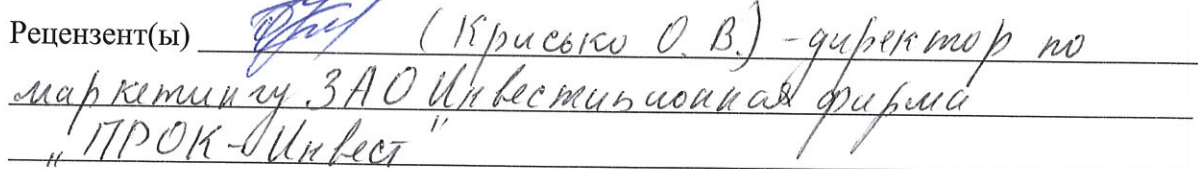 Рецензент(ы) (Крисько О. В.) - директор по
маркетингу ЗАО Инвестиционная фирма
„ПРОК-Инвест"